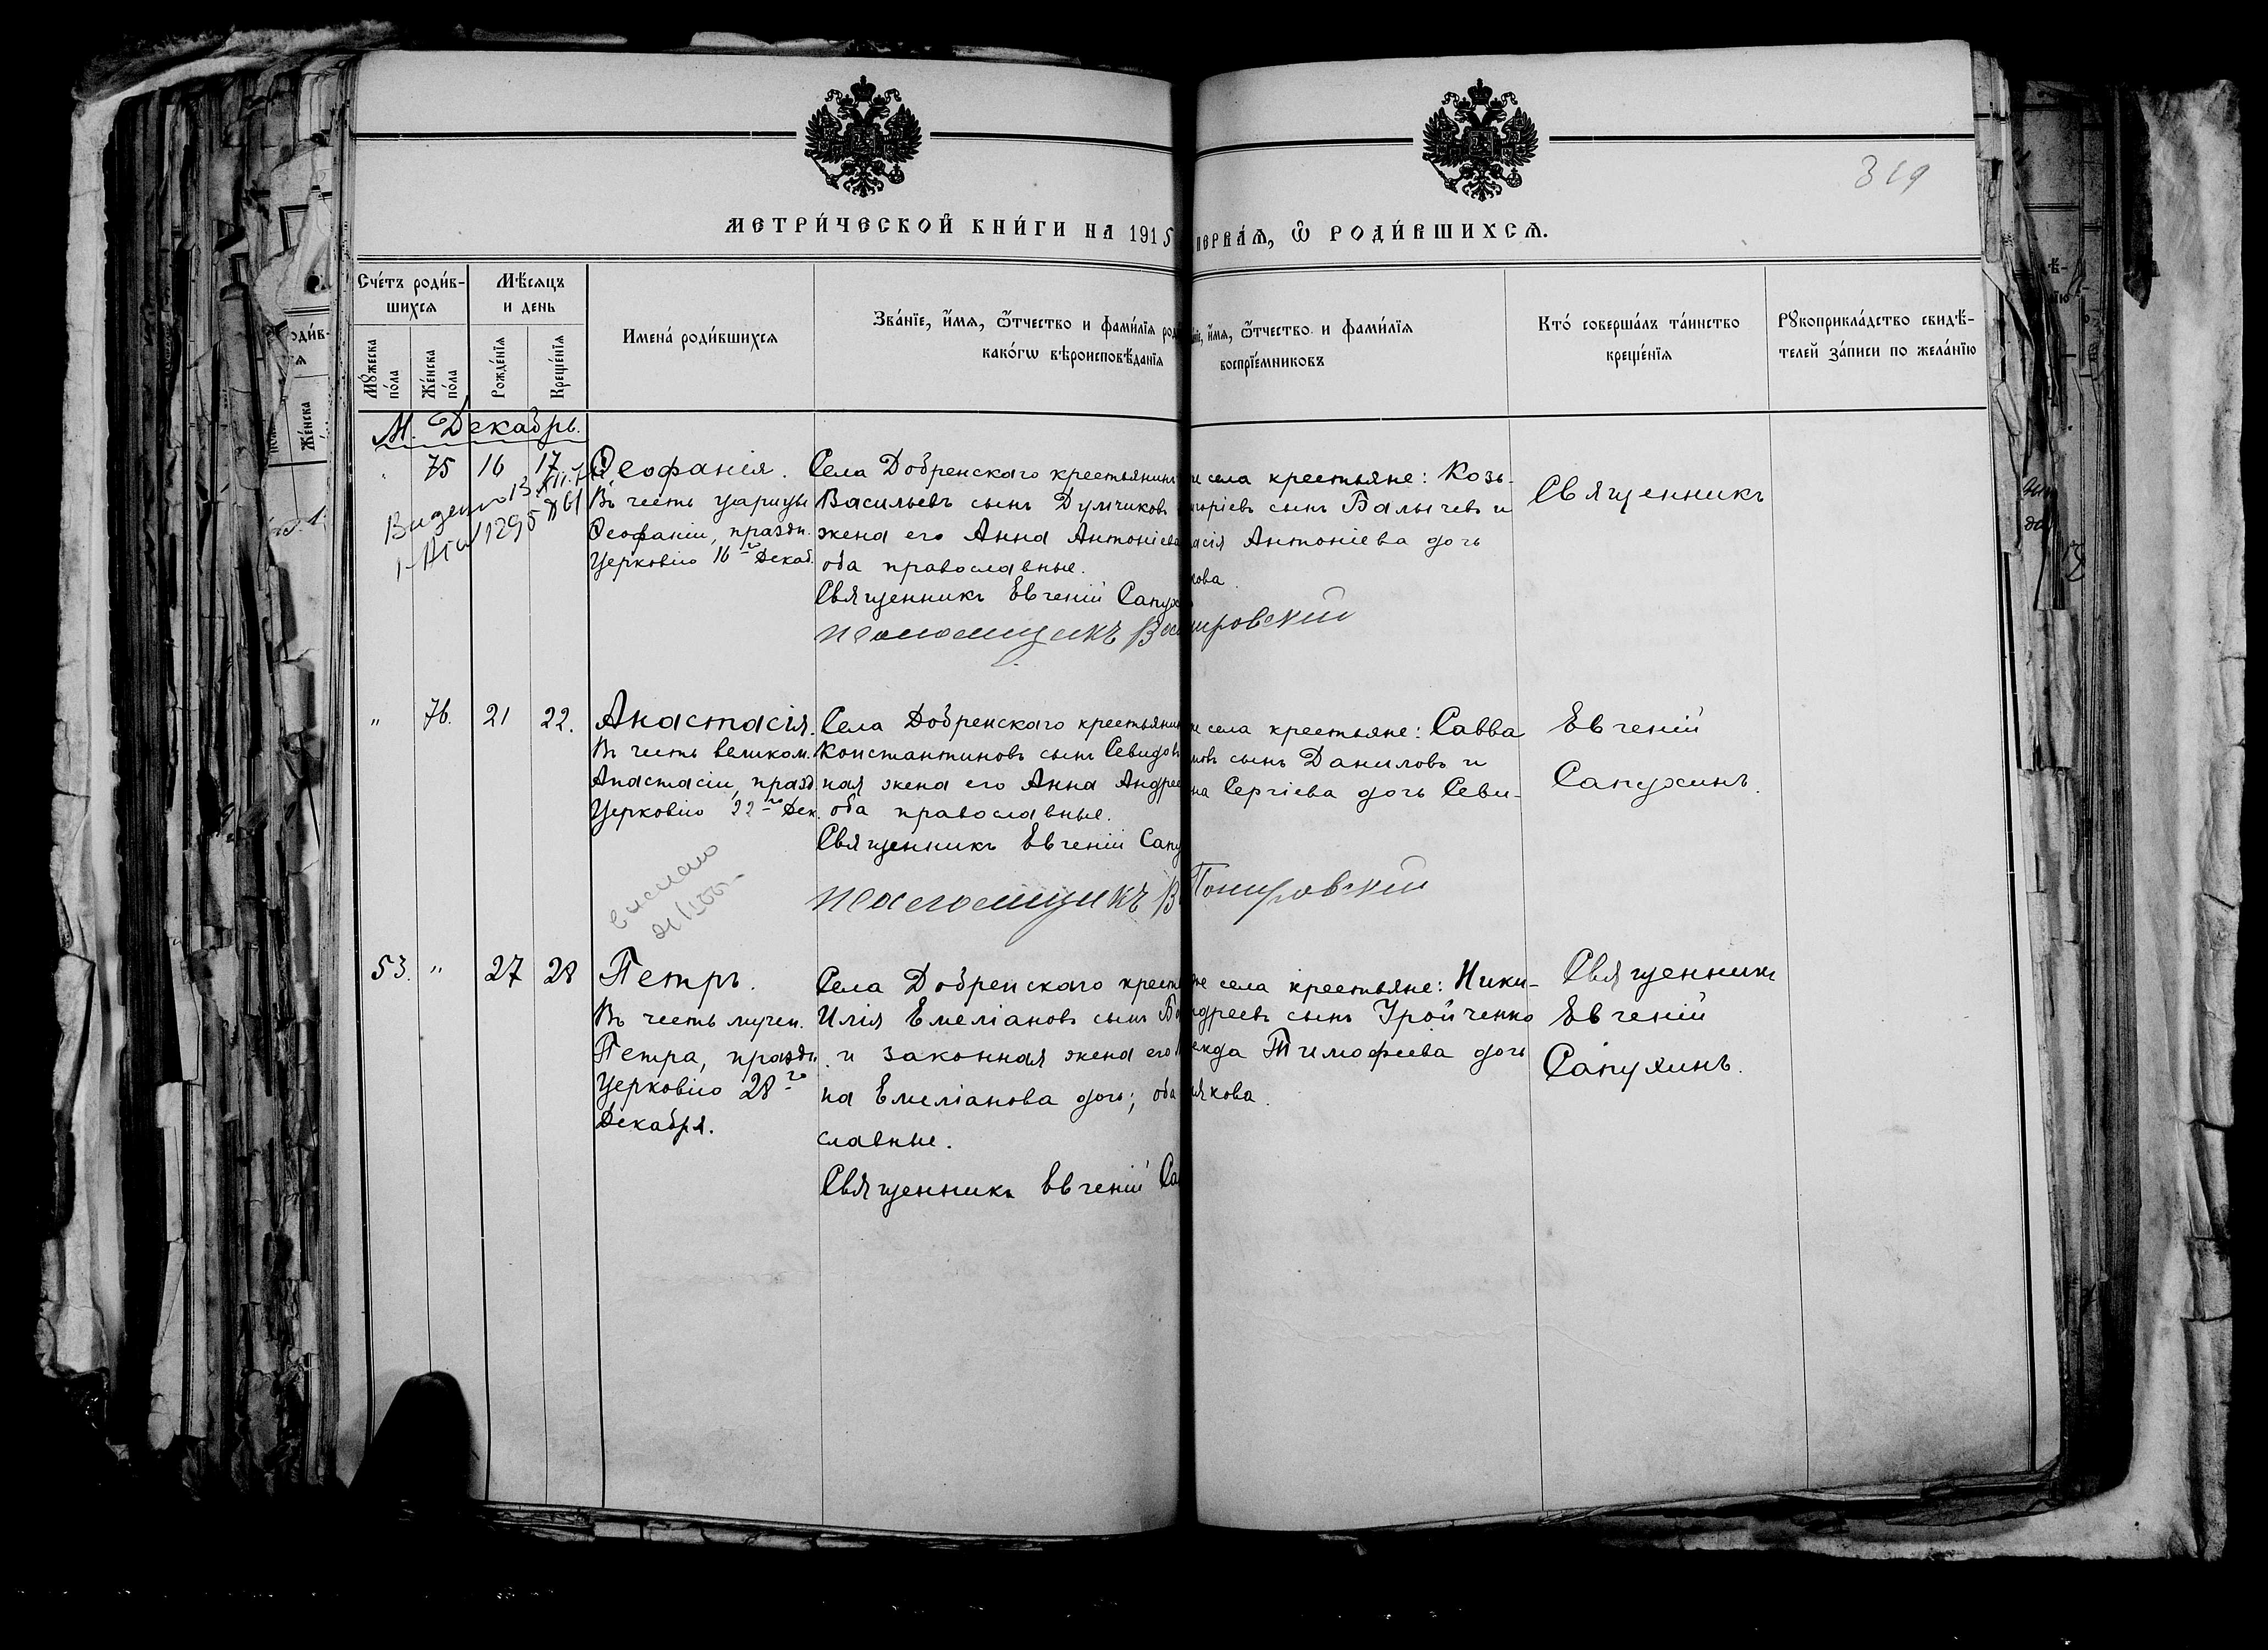 319
МЕТРИ́ЧЕСКОЙ КНИ́ГИ НА 1915
ПЕРВА́Я, Ѡ҆ РОДИ́ВШИХСЯ.
Сче́тъ роди́в-
шихся
Мѣ́сяцъ
и день
Му́жеска
по́ла
Же́нска
по́ла
Рожде́нїя
Креще́нїя
Имена́ роди́вшихся
Зва́нїе, и҆́мя, ѻ҆́тчество и фами́лїя род
како́гѡ вѣроисповѣ́данїя
нїе, и҆́мя, ѻ҆́тчество и фами́лїя
воспрїе́мниковъ
Кто́ соверша́лъ та́инство
креще́нїя
Рукоприкла́дство свидѣ́-
телей за́писи по жела́нїю
М. Декабрь.
75 16 17 Ѳеофанія.
Въ честь царицы
Ѳеофаніи, праздн.
Церковію 16го Декаб.
Села Добренскаго крестьянинъ
Васильевъ сынъ Думчиковъ
жена его Анна Антоніева
оба православные.
Священникъ Евгеній Сапух
Псаломщикъ
же села крестьяне: Козь-
горіевъ сынъ Балычевъ и
асія Антоніева дочь
кова.
ировскій
Священникъ
" 76. 21 22. Анастасія.
Въ честь великом.
Анастасіи, празд.
Церковію 22го Дек.
Села Добренскаго крестьянин
Константиновъ сынъ Севидов
ная жена его Анна Андрее
оба православные.
Священникъ Евгеній Сапу
Псаломщикъ В
же села крестьяне: Савва
мовъ сынъ Даниловъ и
на Сергіева дочь Севи-
Евгеній
Сапухинъ.
53. " 27 28 Петръ.
Въ честь мучен.
Петра, праздн.
Церковію 28го
Декабря.
Села Добренскаго крестья
Илія Емеліановъ сынъ Бо
и законная жена его
на Емеліанова дочь; оба
славные.
Священникъ Евгеній Са
же села крестьяне: Ники-
ндреевъ сынъ Тройченко
ежда Тимофеева дочь
якова.
Священникъ
Евгеній
Сапухинъ.